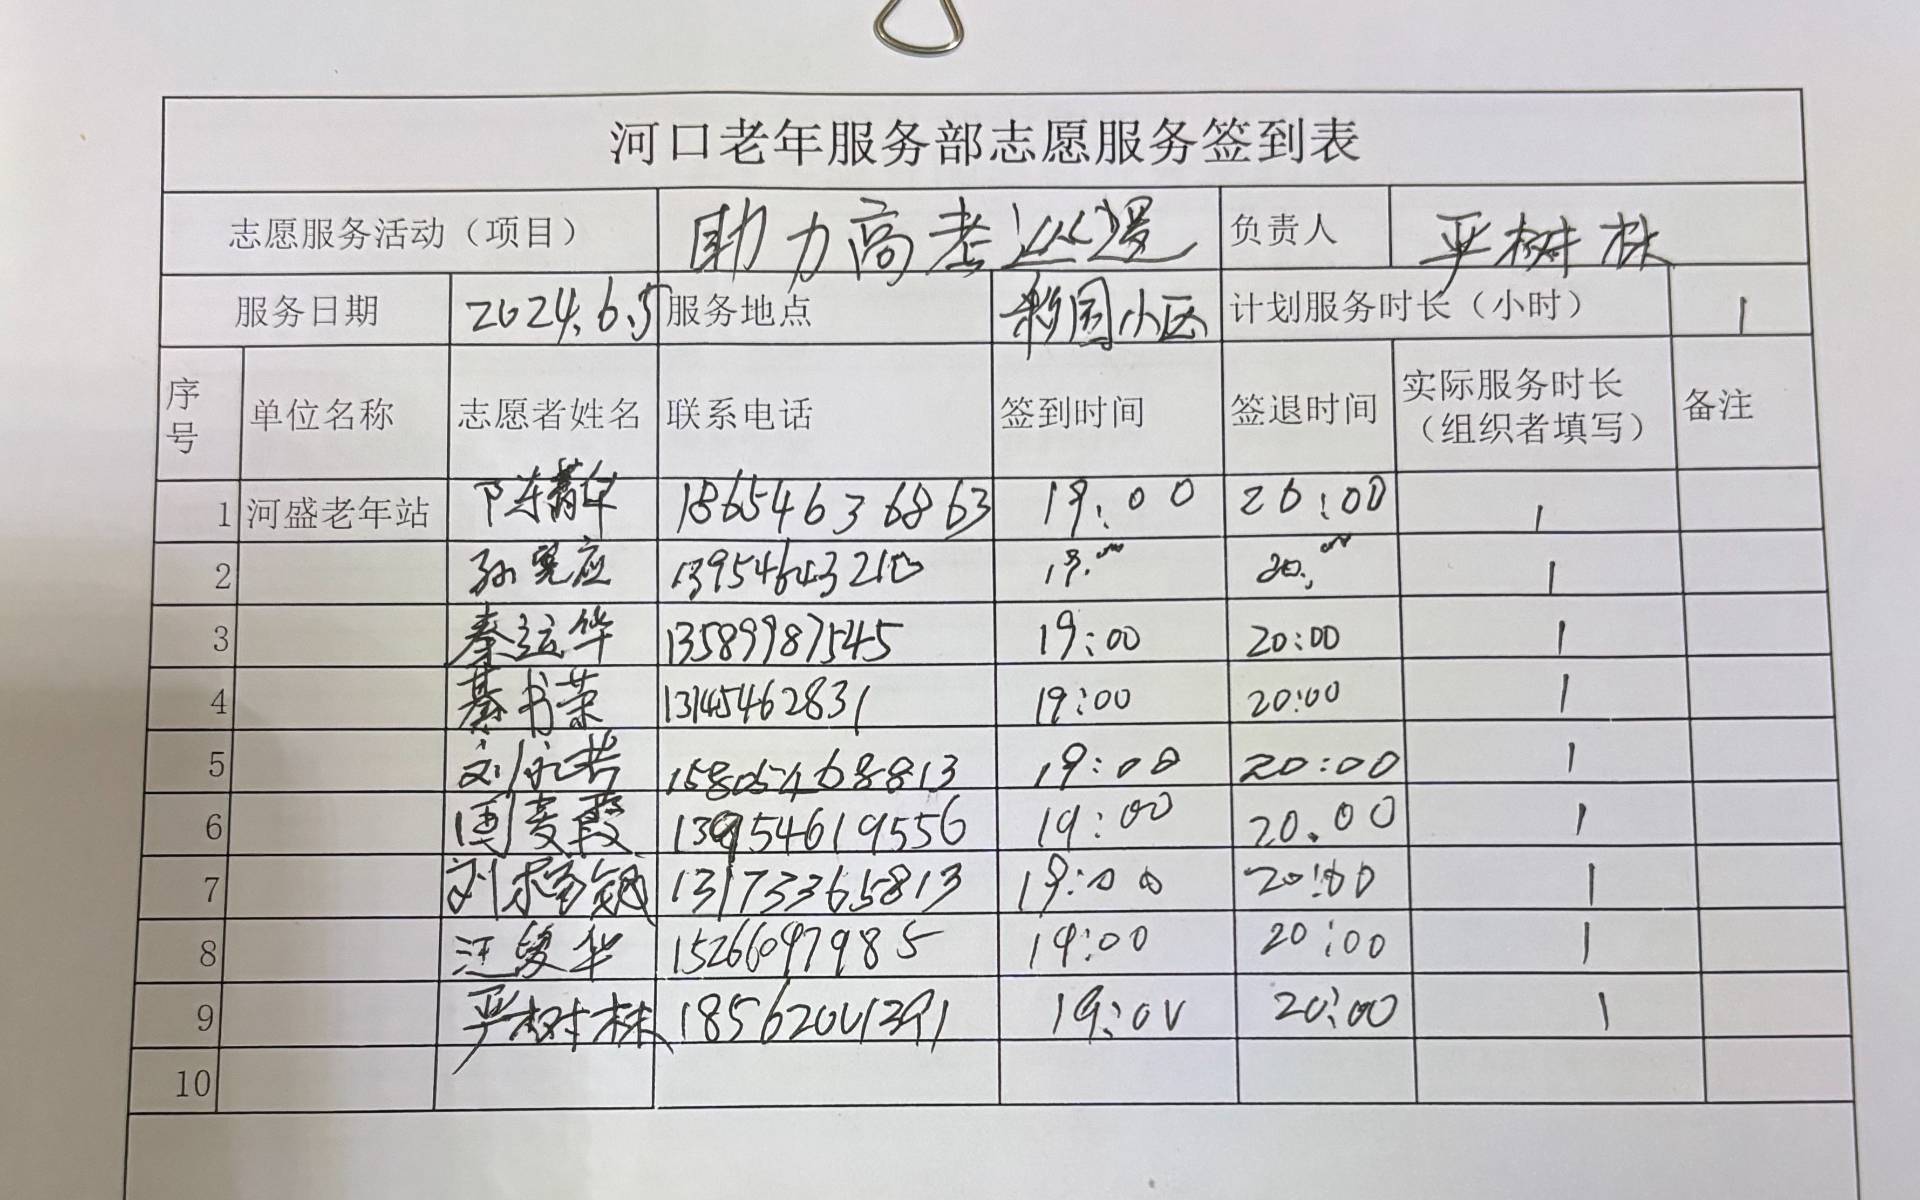 河口老年服务部志愿服务签到表
志愿服务活动（项目） 助力高考巡逻 负责人 严树林
服务日期 2024.6.5 服务地点 小区 计划服务时长（小时） 1
序号 单位名称 志愿者姓名 联系电话 签到时间 签退时间 实际服务时长（组织者填写） 备注
1 河盛老年站 陈菁华 18654636863 19:00 20:00 1
2 孙 应 1
3 秦运华 13589987545 19:00 20:00 1
4 綦书荣 13145462831 19:00 20:00 1
5 刘永芳 15805468813 19:00 20:00 1
6 13954619556 19:00 20.00 1
7 刘 13173365813 19:00 20:00 1
8 汪爱华 15266097985 19:00 20:00 1
9 严树林 18562001391 19:00 20:00 1
10